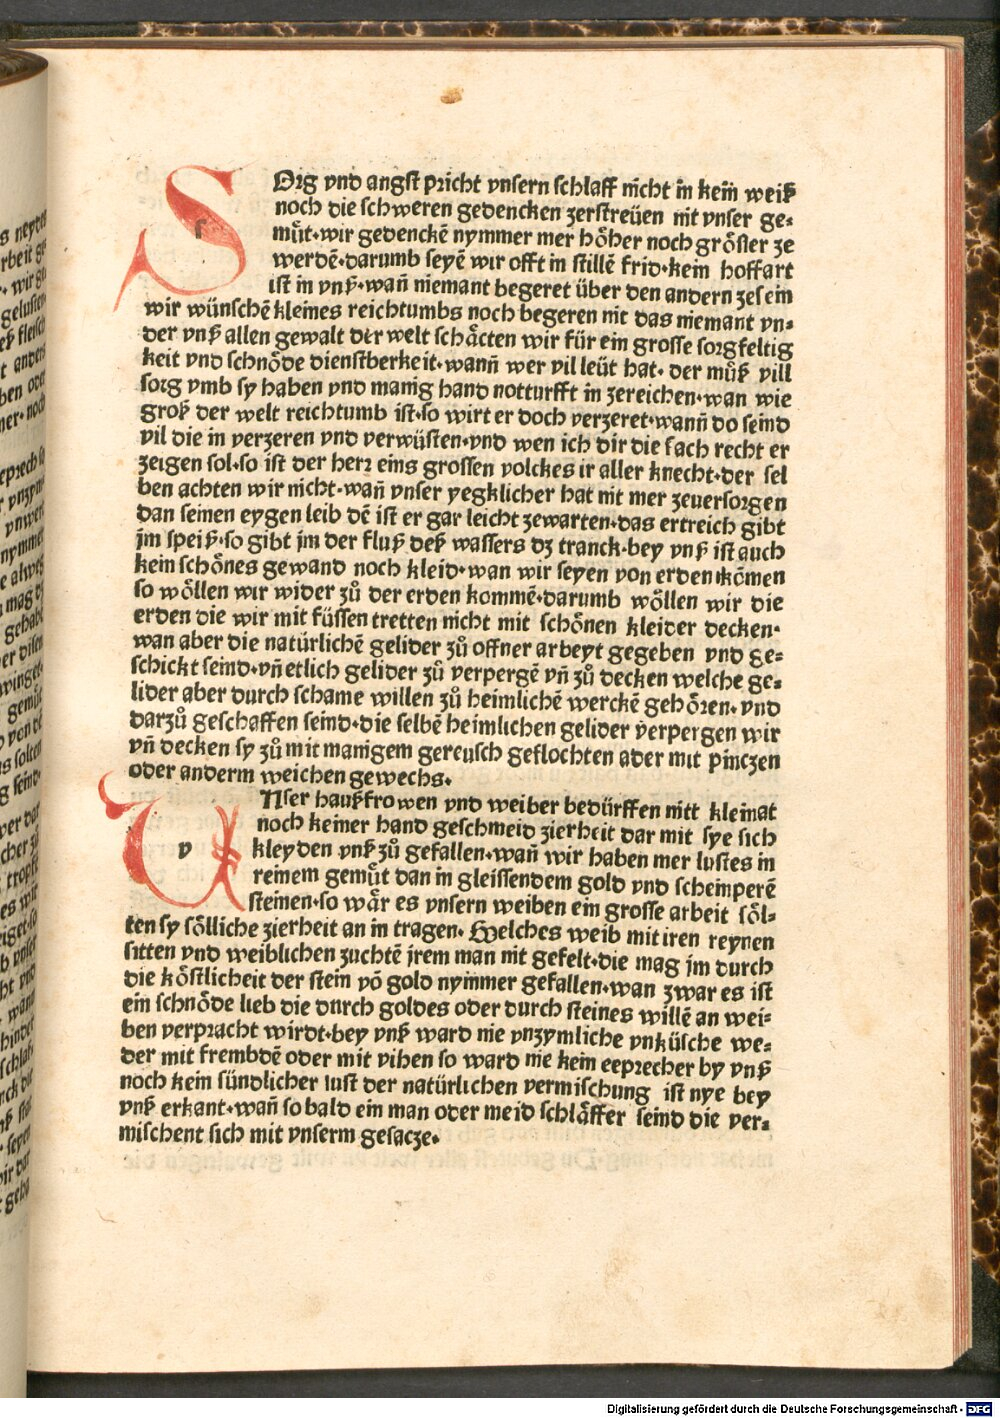 SOrg vnd angst pricht vnsern schlaff nicht in kein weiß
noch die schweren gedencken zerstreüen nit vnser ge⸗
mu᷑t·wir gedenckē nymmer mer höher noch gröſſer ze
werdē·darumb seyē wir offt in stillē frid·kein hoffart
ist in vnß·wan̄ niemant begeret über den andern zesein
wir wünschē kleines reichtumbs noch begeren nit das niemant vn⸗
der vnß allen gewalt der welt schäcten wir für ein grosse sorgfeltig
keit vnd schnöde dienstberkeit·wann̄ wer vil leüt hat· der mu᷑ß vill
sorg vmb sy haben vnd manig hand notturfft in zereichen·wan wie
groß der welt reichtumb ist·so wirt er doch verzeret·wann̄ do seind
vil die in verzeren vnd verwüsten·vnd wen ich dir die sach recht er
zeigen sol·so ist der herr eins grossen volckes ir aller knecht·der sel
ben achten wir nicht·wan̄ vnser yegklicher hat nit mer zeuersorgen
dan seinen eygen leib dē ist er gar leicht zewarten·das ertreich gibt
jm speiß·so gibt jm der fluß deß wassers dz tranck·bey vnß ist auch
kein schönes gewand noch kleid·wan wir seyen von erden kōmen
so wöllen wir wider zů der erden kommē·darumb wöllen wir die
erden die wir mit füssen tretten nicht mit schönen kleider decken·
wan aber die natürlichē gelider zů offner arbeyt gegeben vnd ge⸗
schickt seind·vn̄ etlich gelider zů verpergē vn̄ zů decken welche ge⸗
lider aber durch schame willen zů heimlichē werckē gehören·vnd
darzů geschaffen seind·die selbē heimlichen gelider verpergen wir
vn̄ decken sy zů mit manigem gereusch geflochten ader mit pinczen
oder anderm weichen gewechs·
VNser haußfrowen vnd weiber bedürffen nitt kleinat
noch keiner hand geschmeid zierheit dar mit sye sich
kleyden vnß zů gefallen·wan̄ wir haben mer lustes in
reinem gemu᷑t dan in gleissendem gold vnd scheinperē
steinen·so wär es vnsern weiben ein grosse arbeit söl⸗
ten sy sölliche zierheit an in tragen· Welches weib mit iren reynen
sitten vnd weiblichen zuchtē jrem man nit gefelt·die mag jm durch
die köstlicheit der stein vō gold nymmer gefallen·wan zwar es ist
ein schnöde lieb die durch goldes oder durch steines willē an wei⸗
ben verpracht wirdt·bey vnß ward nie vnzymliche vnküsche we⸗
der mit frembdē oder mit vihen so ward nie kein eeprecher by vnß
noch kein sündlicher lust der natürlichen vermischung ist nye bey
vnß erkant·wan̄ so bald ein man oder meid schläffer seind die ver⸗
mischent sich mit vnserm gesacze·
Digitalisierung gefördert durch die Deutsche Forschungsgemeinschaft - DFG